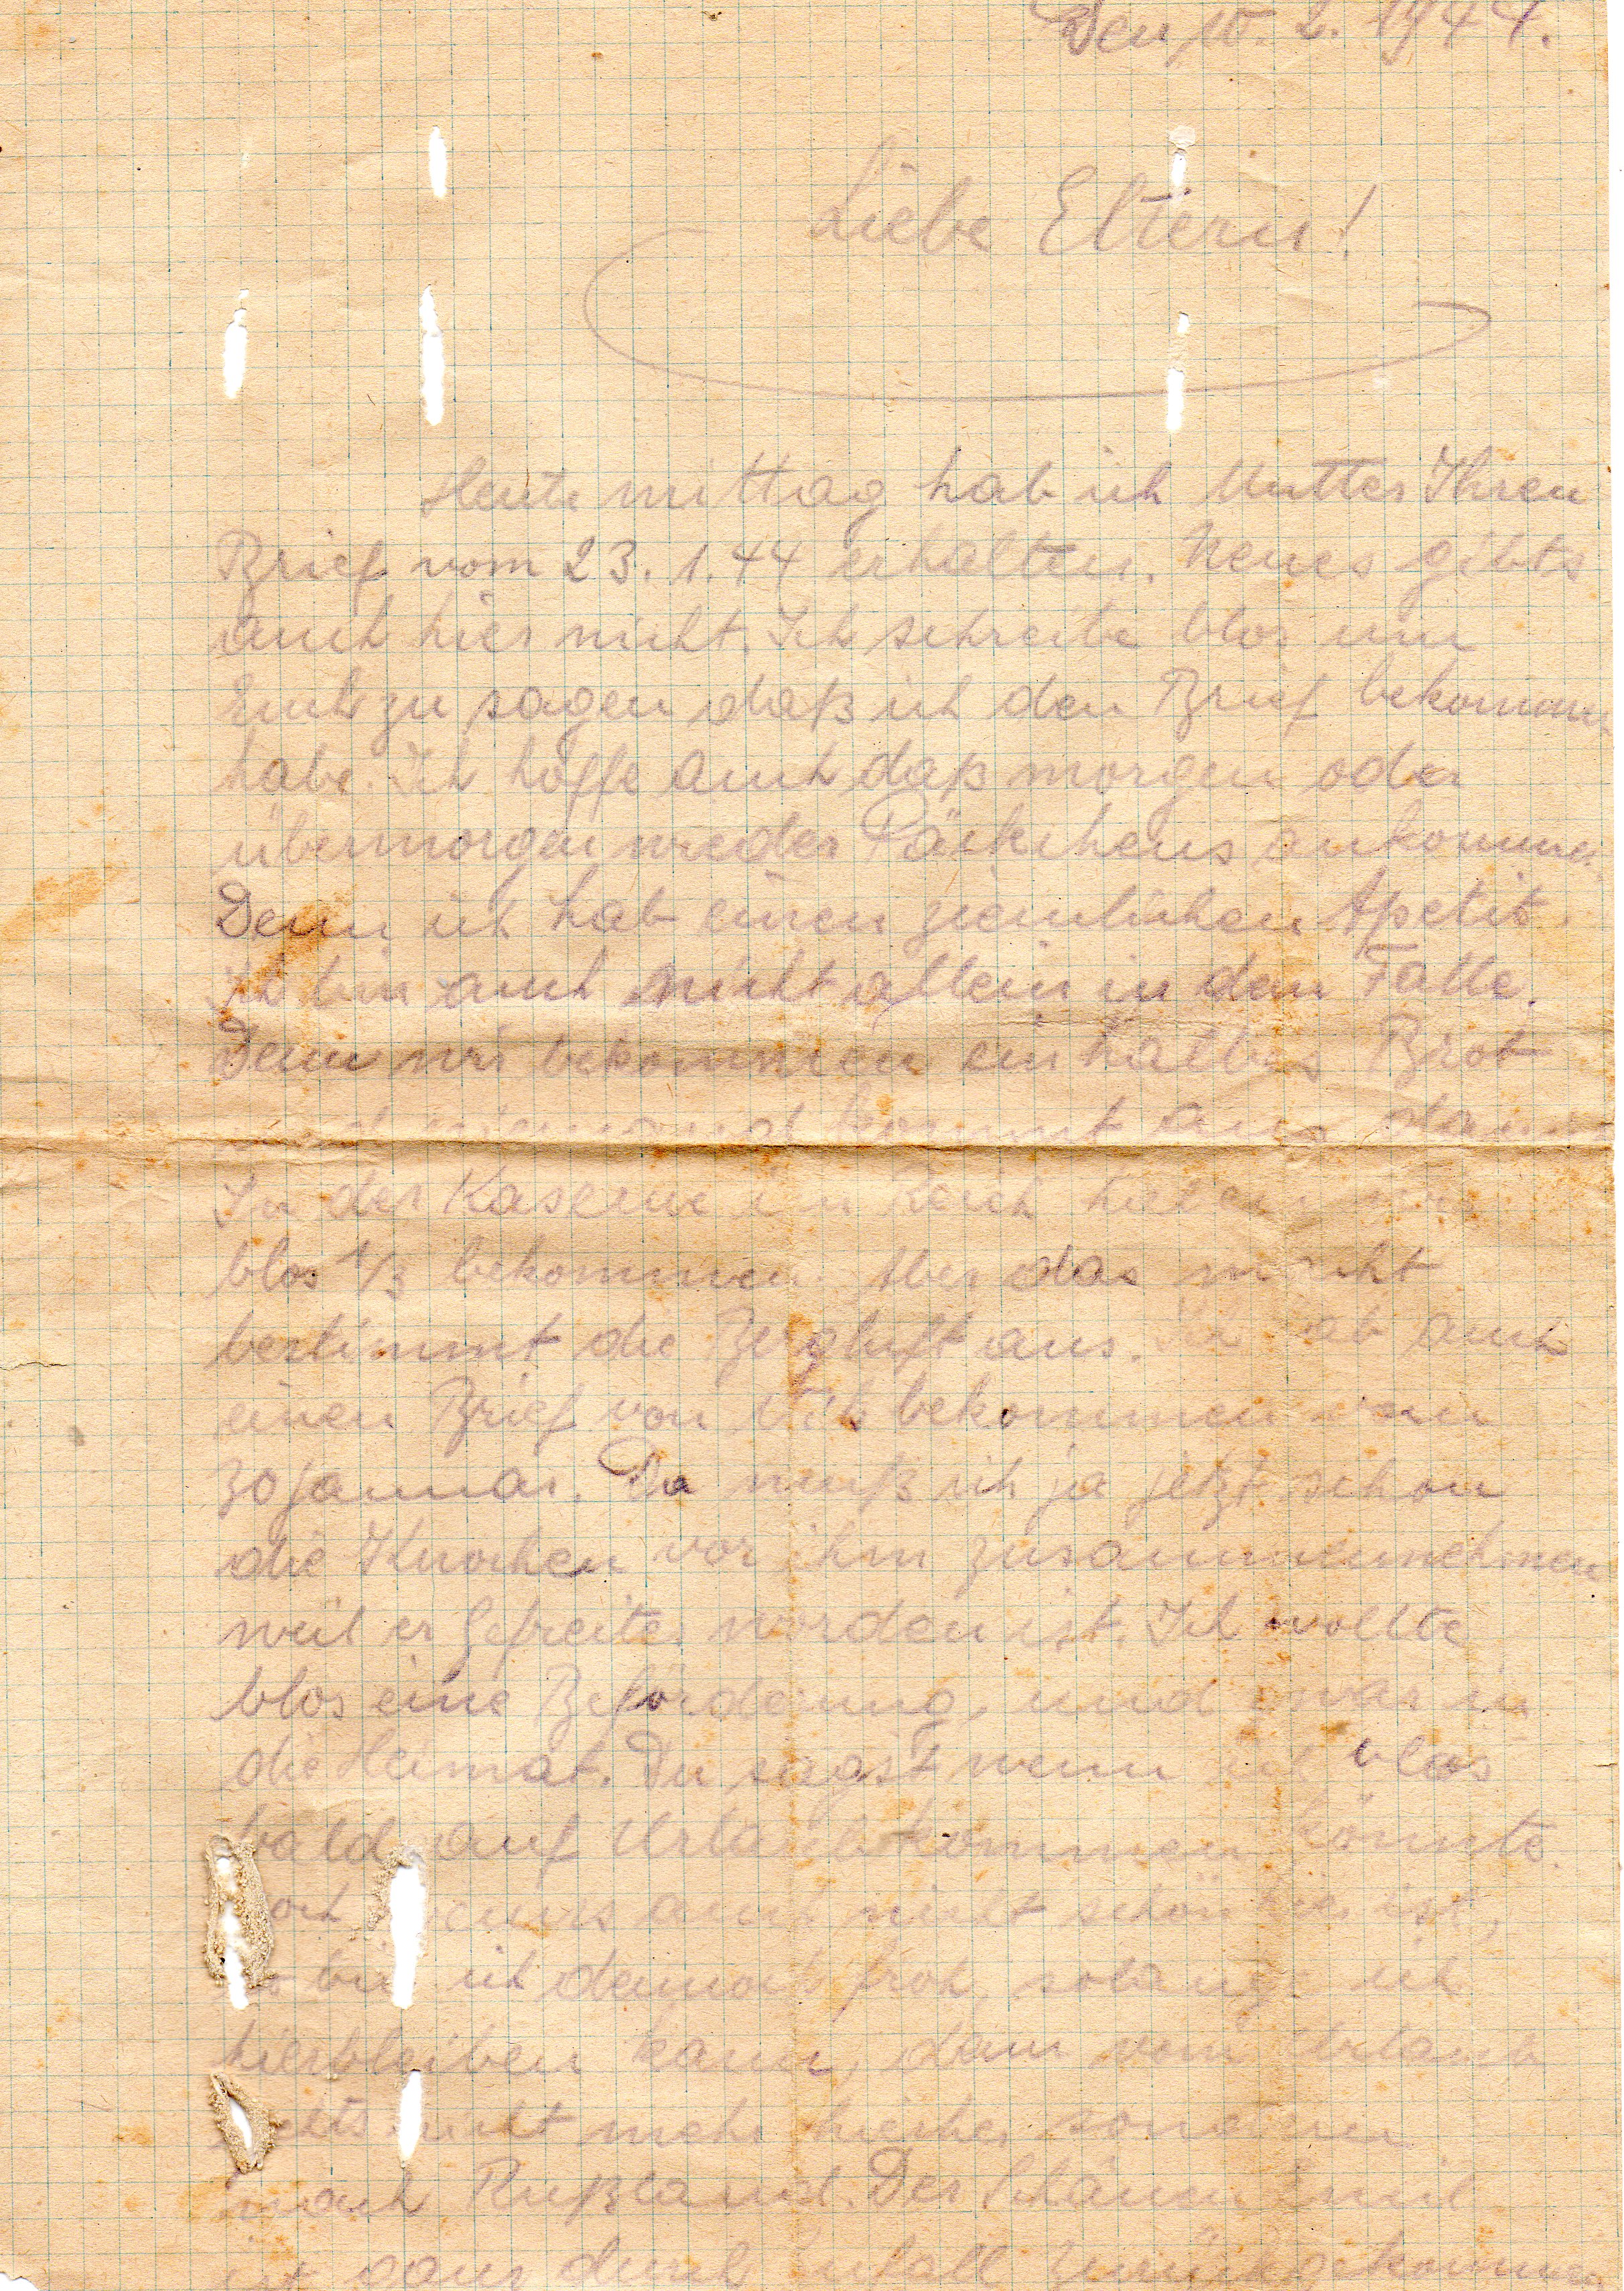 Den 10. 2. 1944.
Liebe Eltern!
Heute mittag hab ich Mutter Ihren
Brief vom 23. 1. 44 erhalten. Neues gibts
auch hier nicht. Ich schreibe blos um
Euch zu sagen daß ich den Brief bekommen
habe. Ich hoffe auch daß morgen oder
übermorgen wieder Päckchens ankommen.
Denn ich hab einen ziemlichen Apetit.
Ich bin auch nicht allein in dem Falle.
Denn wir bekommen ein halbes Brot
niemand kommt aus damit
In der Kaserne im Reich haben wir
blos 1/3 bekommen. Aber das macht
bestimmt die Bergluft aus. Ich hab auch
einen Brief von bekommen vom
30 Januar. Da muß ich ja jetzt schon
die Knochen vor ihm zusammennehmen
weil er Gefreiter worden ist. Ich wollte
blos eine Beförderung, und zwar in
die Heimat. Du sagst wenn ich blos
bald auf Urlaub kommen könnte.
auch nicht schön hier ist,
so bin ich dennoch froh, solange ich
hierbleiben kann, denn vom Urlaub
gehts nicht mehr hierher sondern
nach Rußland. Der
ist durch Zufall zurückgekommen